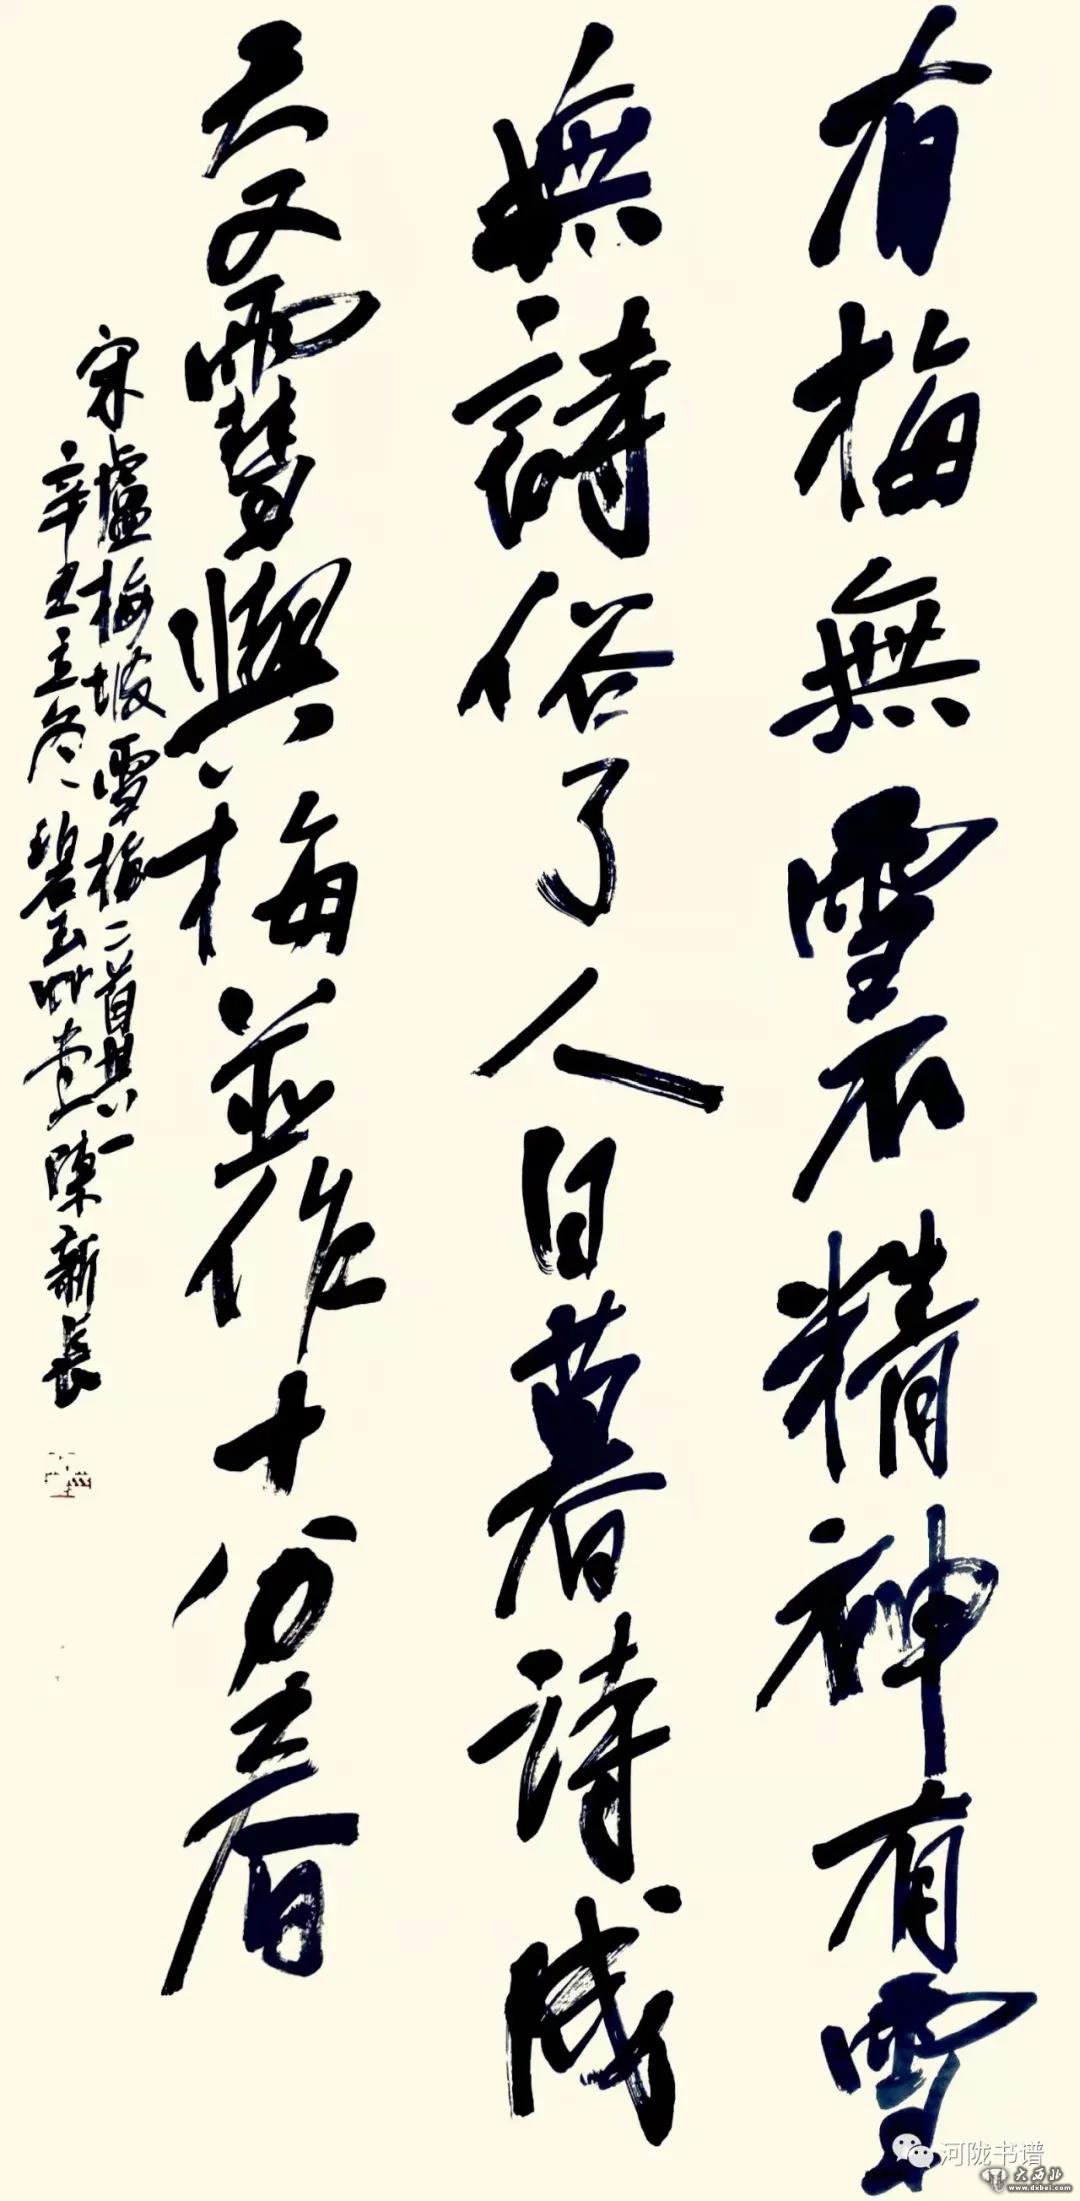 有梅無雪不精神有雪
無詩俗了人日暮詩成
天又雪與梅並作十分春
宋盧梅坡雪梅二首其一
辛丑立冬碧玉草堂陳新長
河陇书谱
大西北
www.dxbei.com